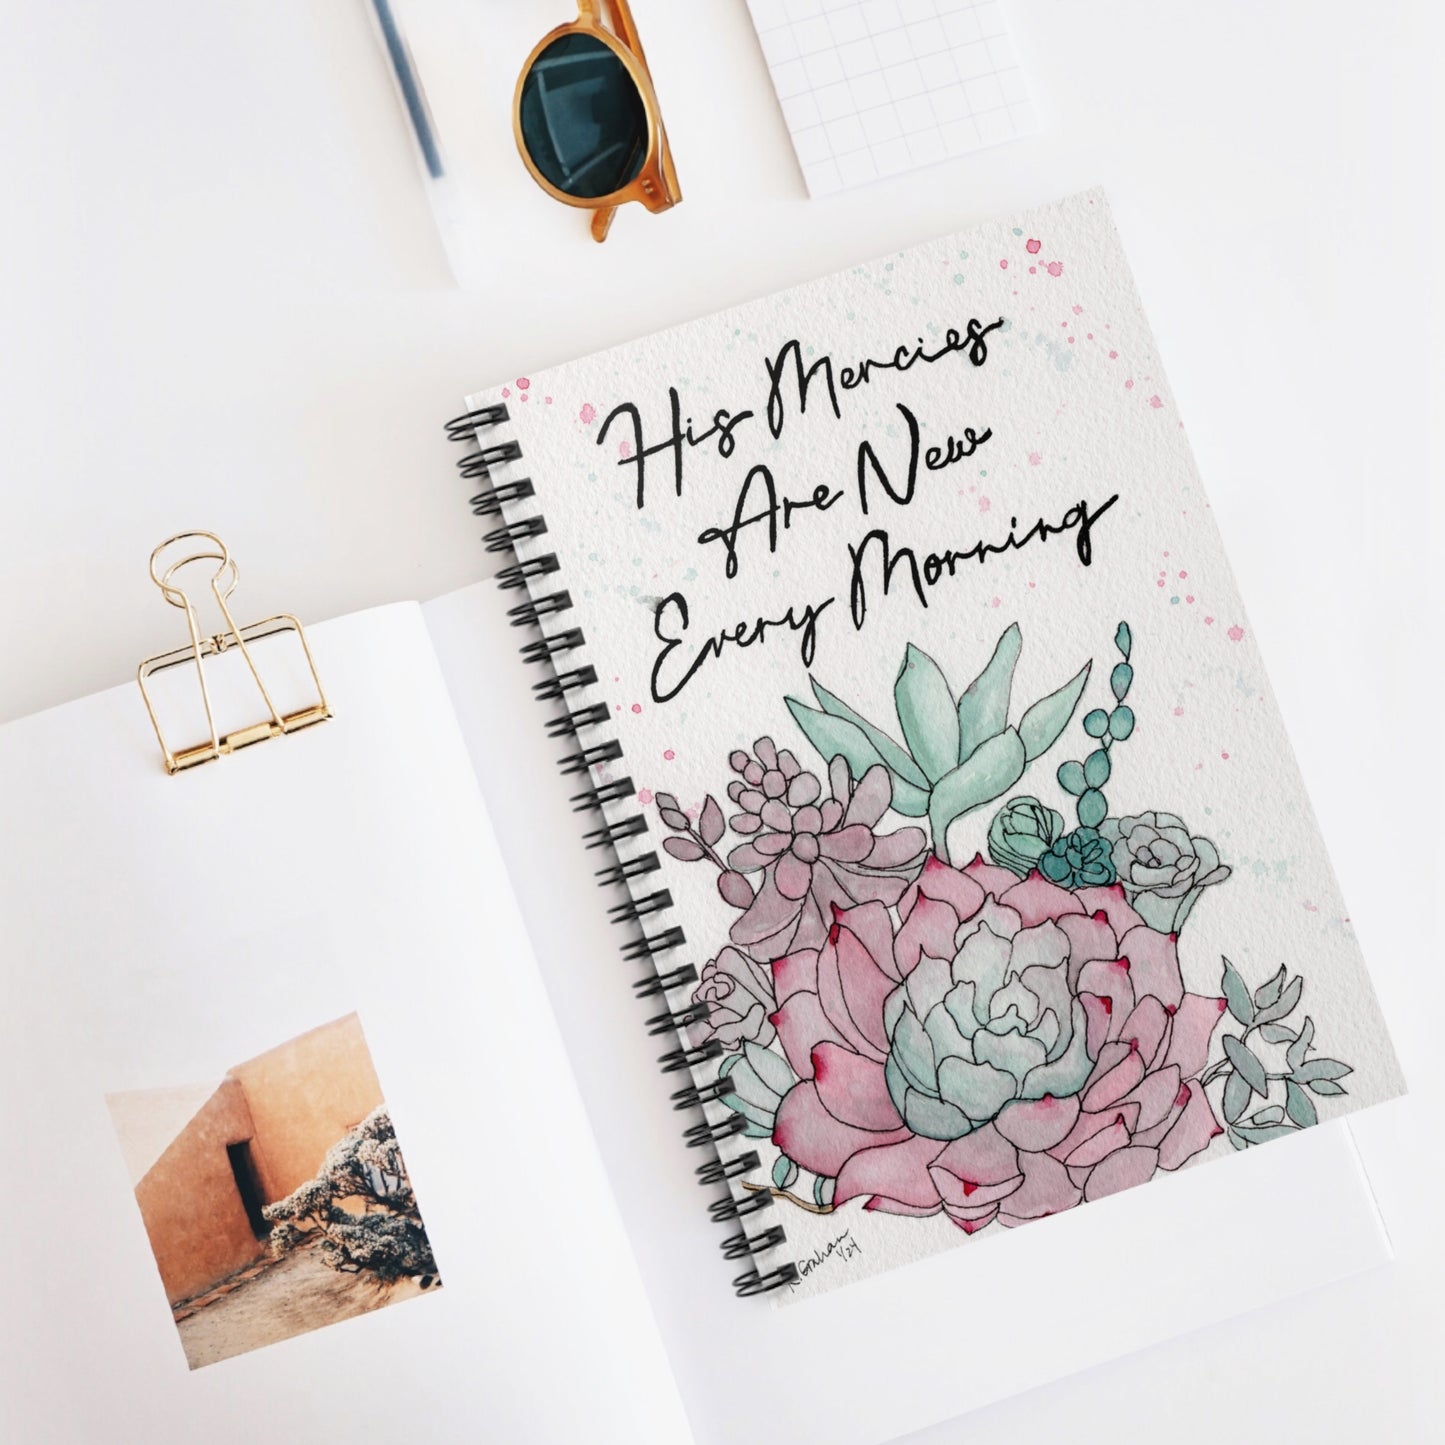 His Mercies
Are New
Every Morning
R. Graham
1/24